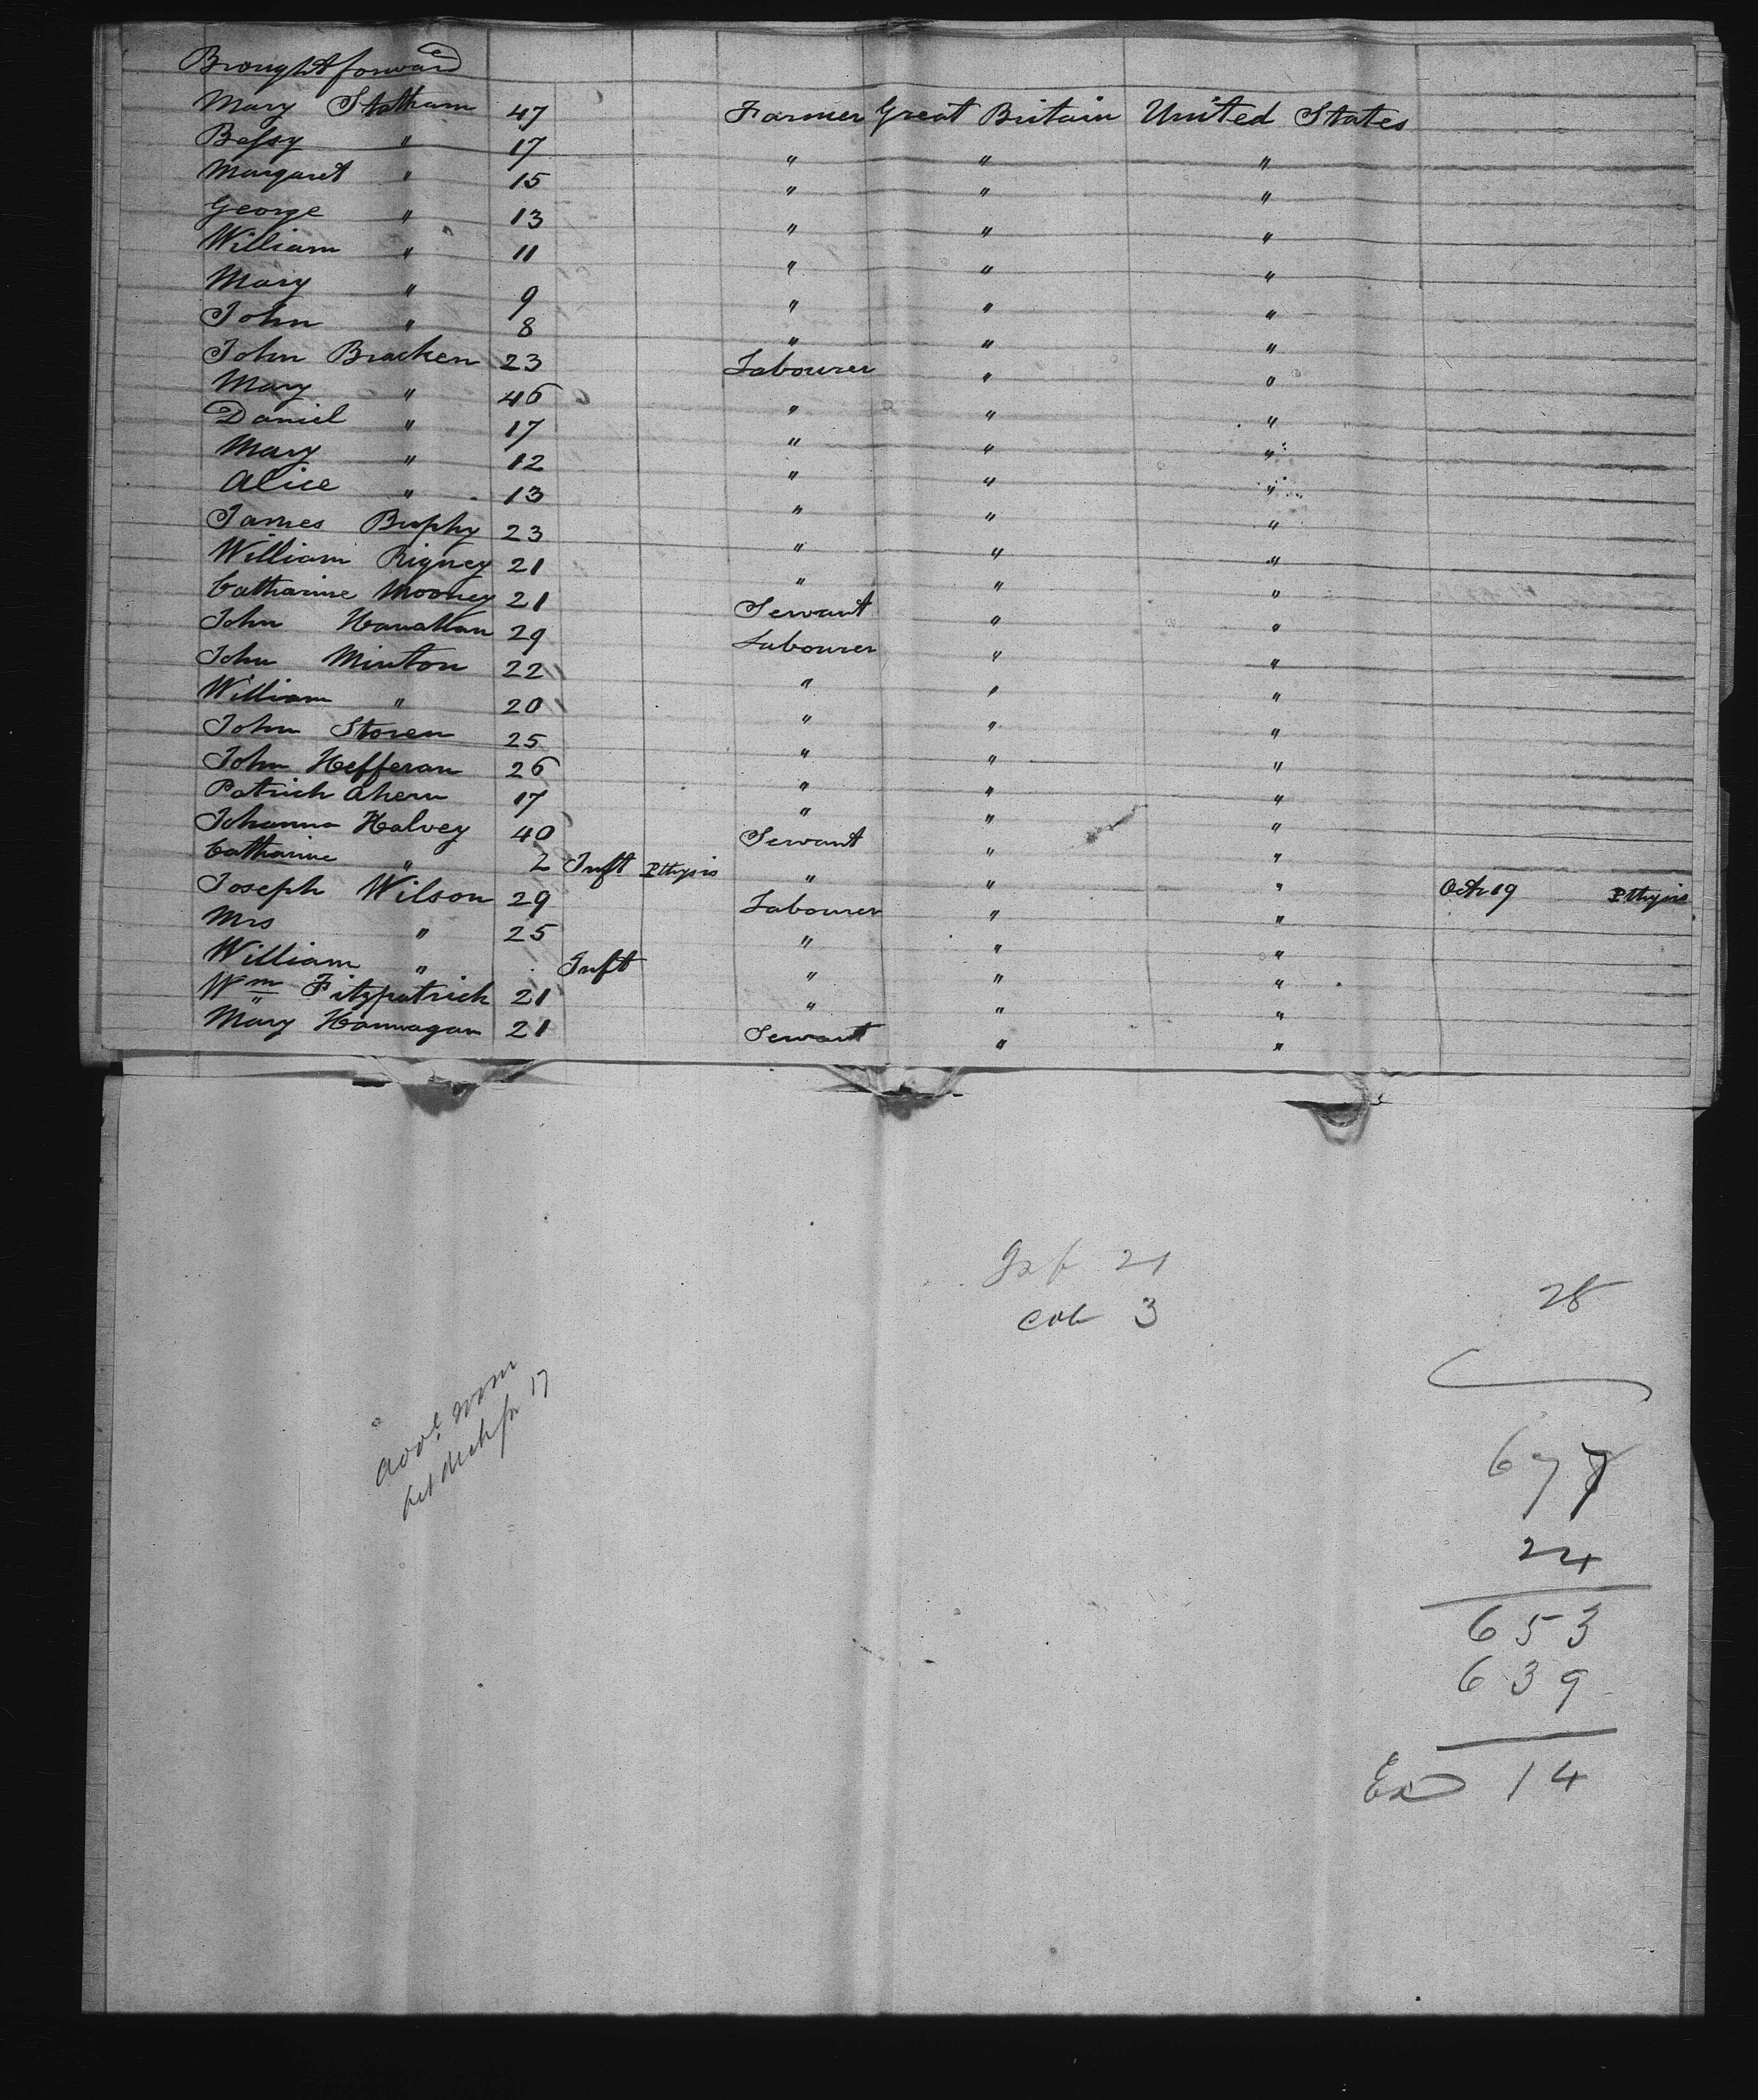 Brought forward
Mary Statham 47 Farmer Great Britain United States
Bessy " 17 " " "
Margaret " 15 " " "
George " 13 " " "
William " 11 " " "
Mary " 9 " " "
John " 8 " " "
John Bracken 23 Labourer " "
Mary " 46 " " "
Daniel " 17 " " "
Mary " 12 " " "
Alice " 13 " " "
James Bruphy 23 " " "
William Rigney 21 " " "
Catharine Mooney 21 Servant " "
John Hanallan 29 Labourer " "
John Minton 22 " " "
William " 20 " " "
John Storen 25 " " "
John Hefferan 26 " " "
Patrick Ahern 17 " " "
Johanna Halvey 40 Servant " "
Catharine " 2 Inft Pthysis " " " Octr 19 Pthysis
Joseph Wilson 29 Labourer " "
Mrs " 25 " " "
William " Inft " " "
Wm Fitzpatrick 21 " " "
Mary Hannagan 21 Servant " "
21
3
28
677
24
653
639
14
17